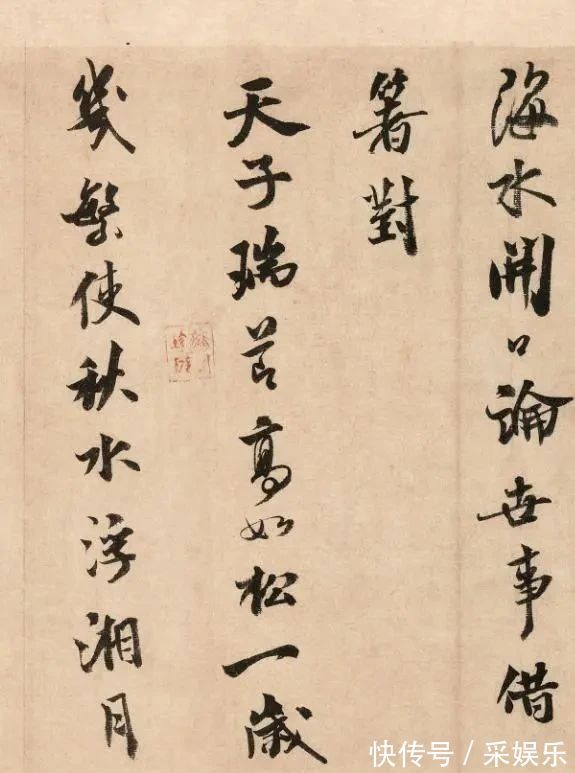 海水開口論世事借
箸對
天子瑞节高如松一歲
幾繁使秋水浮湘月
快传号/采娱乐